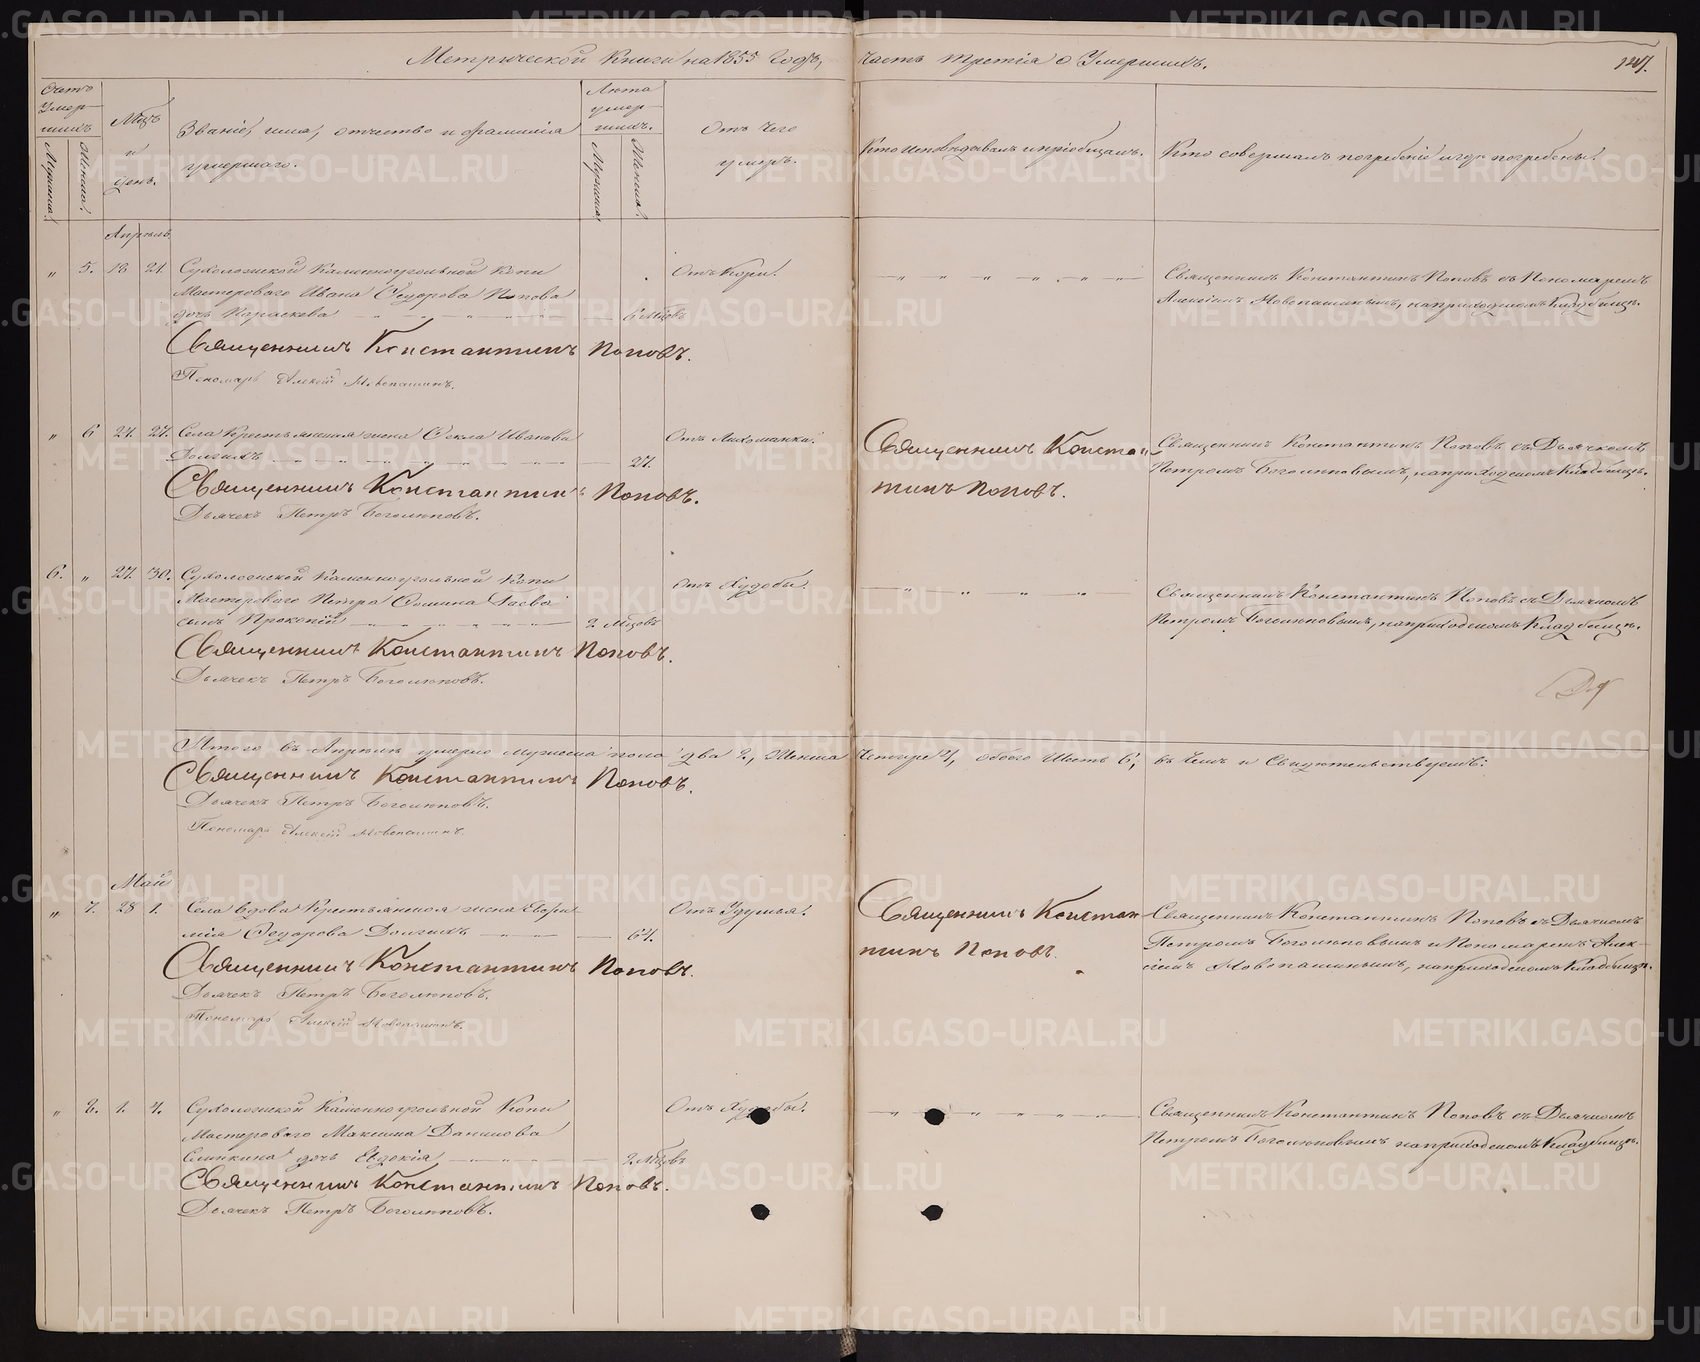 Метрической Книги на 1855 годъ, часть третія о Умершихъ.
127.
Счетъ Умершихъ
Мужеска.
Женска.
Мѣсяцъ и день.
Званіе, имя, отчество и фамилія умершаго.
Лѣта умершихъ.
Мужеска.
Женска.
Отъ чего умеръ.
Кто исповѣдывалъ и пріобщалъ.
Кто совершалъ погребеніе и гдѣ погребены.
Апрѣль
„ 5. 18 21. Сухоложской Каменноугольной Копи
Мастероваго Ивана Ѳедорова Попова
дочь Параскева 6 Мѣсцовъ
Отъ Кори.
Священникъ Константинъ Поповъ съ Пономаремъ
Алексіемъ Новопашинымъ, на приходскомъ Кладбищѣ.
Священникъ Константинъ Поповъ.
Пономарь Алексій Новопашинъ.
„ 6 24. 27. Села Крестьянская жена Ѳекла Иванова
Долгихъ 27.
Отъ Лихоманки.
Священникъ Константинъ Поповъ.
Священникъ Константинъ Поповъ съ Дьячкомъ
Петромъ Боголюповымъ, на приходскомъ Кладбищѣ.
Священникъ Константинъ Поповъ.
Дьячекъ Петръ Боголюповъ.
6. „ 27. 30. Сухоложской Каменноугольной Копи
Мастероваго Петра
сынъ Прокопій 2 Мѣсцовъ
Отъ Худобы.
Священникъ Константинъ Поповъ съ Дьячкомъ
Петромъ Боголюповымъ, на приходскомъ Кладбищѣ.
Священникъ Константинъ Поповъ.
Дьячекъ Петръ Боголюповъ.
Итого въ Апрѣлѣ умерло мужеска пола два 2, Женска Четыре 4, обоего Шесть 6, въ чемъ и Свидѣтельствуемъ:
Священникъ Константинъ Поповъ.
Дьячекъ Петръ Боголюповъ.
Пономарь Алексій Новопашинъ.
Май
„ 7. 28 1. Села вдова Крестьянская жена Евфимія Ѳедорова Долгихъ 64.
Отъ Удушья.
Священникъ Константинъ Поповъ.
Священникъ Константинъ Поповъ съ Дьячкомъ
Петромъ Боголюповымъ и Пономаремъ Алексіемъ Новопашинымъ, на приходскомъ Кладбищѣ.
Священникъ Константинъ Поповъ.
Дьячекъ Петръ Боголюповъ.
Пономарь Алексій Новопашинъ.
„ 8. 1. 4. Сухоложской Каменноугольной Копи
Мастероваго Максима Данилова
дочь Евдокія 2 Мѣсцовъ
Отъ Худобы.
Священникъ Константинъ Поповъ съ Дьячкомъ
Петромъ Боголюповымъ на приходскомъ Кладбищѣ.
Священникъ Константинъ Поповъ.
Дьячекъ Петръ Боголюповъ.
METRIKI.GASO-URAL.RU